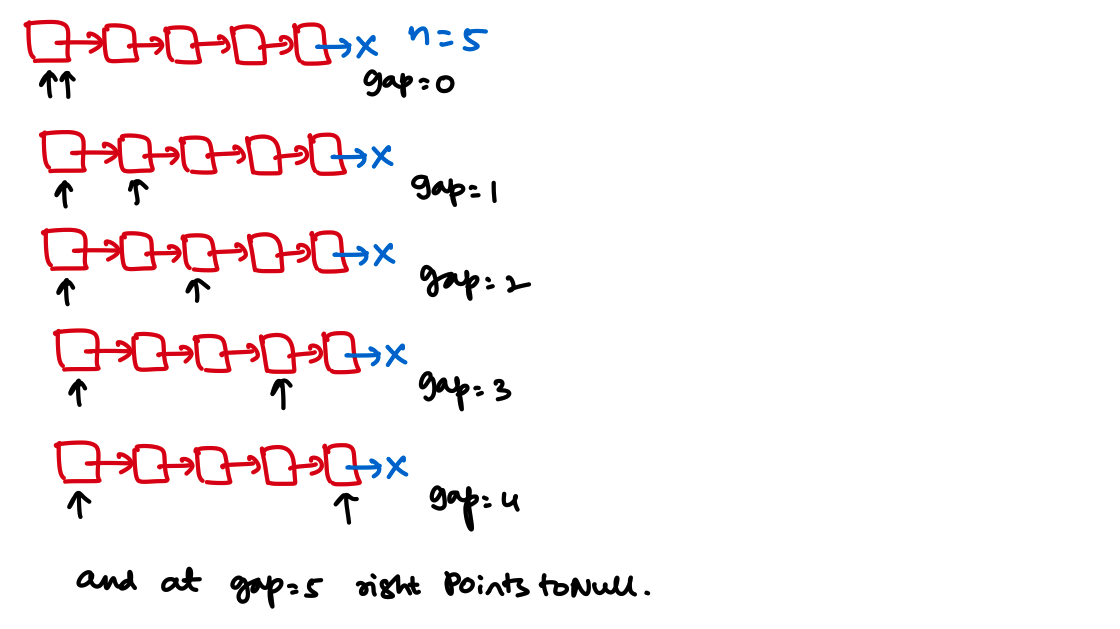 n=5
gap=0
gap=1
gap=2
gap=3
gap=4
and at gap=5 right Points toNull.